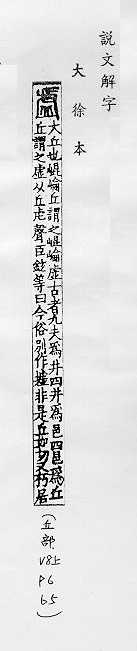 說文解字
大徐本
大丘也崐崘丘謂之崐崘虛古者九夫爲井四井爲邑四邑爲丘
丘謂之虛从丘虍聲臣鉉等曰今俗別作墟非是丘如切又朽居
(丘部
V8上
P6
b5)